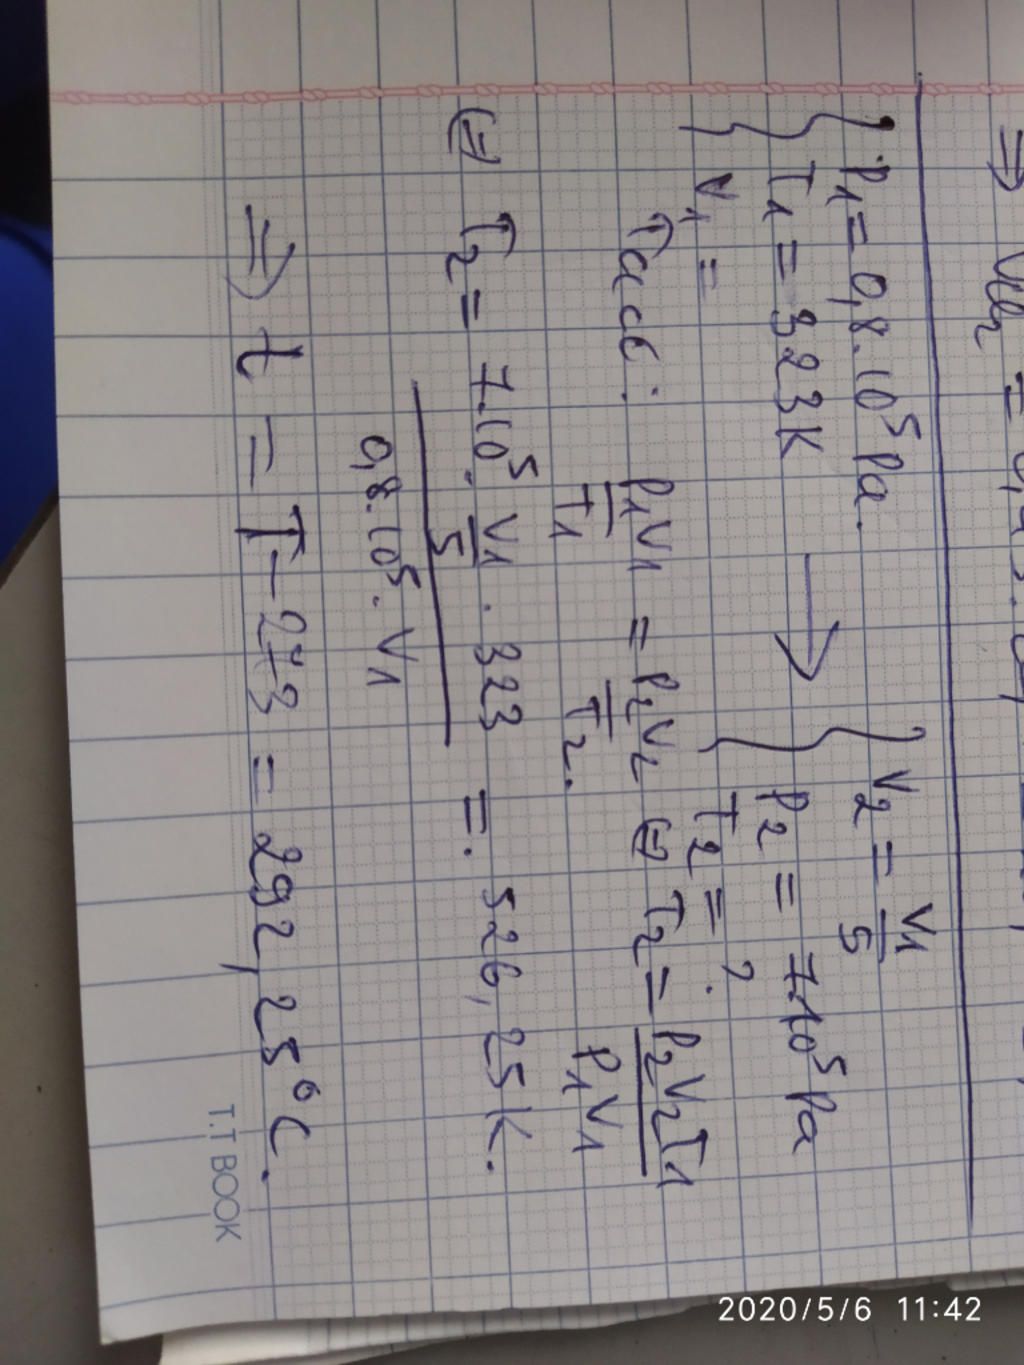 ⇒ V
P₁ = 0,8.10⁵ Pa.
T₁ = 323K
V₁ =
→
V₂ = V₁/5
P₂ = 7.10⁵ Pa
T₂ = ?
Ta có: P₁V₁/T₁ = P₂V₂/T₂. ⇔ T₂ = P₂V₂T₁/P₁V₁
⇔ T₂ = 7.10⁵. V₁/5 . 323 / 0,8.10⁵. V₁ = 526,25K.
⇒ t = T - 273 = 292,25°C.
T.T BOOK
2020/5/6 11:42